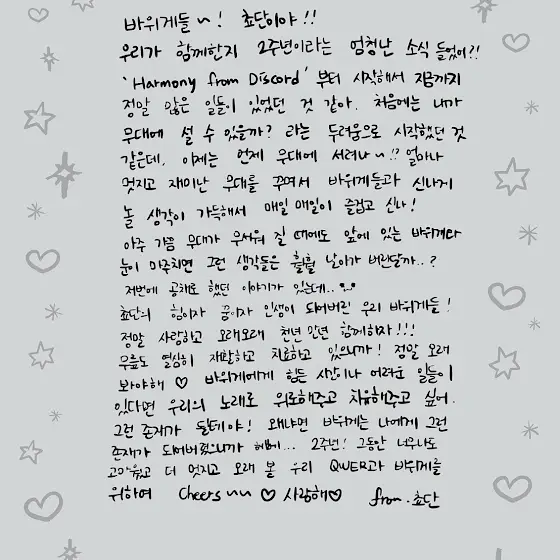 바위게들~! 쵸단이야!!
우리가 함께한지 2주년이라는 엄청난 소식 들었어?!
'Harmony from Discord' 부터 시작해서 지금까지
정말 많은 일들이 있었던 것 같아. 처음에는 내가
무대에 설 수 있을까? 라는 두려움으로 시작했던 것
같은데, 이제는 언제 무대에 서려나~!? 얼마나
멋지고 재미난 무대를 꾸며서 바위게들과 신나게
놀 생각이 가득해서 매일매일이 즐겁고 신나!
아주 가끔 무대가 무서워 질 때에도 앞에 있는 바위게랑
눈이 마주치면 그런 생각들은 훨훨 날아가 버린달까..?
저번에 공채로 했던 이야기가 있는데..
쵸단의 힘이자 꿈이자 인생이 되어버린 우리 바위게들!
정말 사랑하고 오래오래 천년만년 함께하자!!!
무릎도 열심히 재활하고 치료하고 있으니까! 정말 오래
봐야해 ♡ 바위게에게 힘든 시간이나 어려운 일들이
있다면 우리의 노래로 위로해주고 치유해주고 싶어.
그런 존재가 될테야! 왜냐면 바위게는 나에게 그런
존재가 되어버렸으니까 헤헤... 2주년! 그동안 너무나도
고마웠고 더 멋지고 오래 볼 우리 QWER과 바위게를
위하여 Cheers~~ ♡ 사랑해♡ from.쵸단